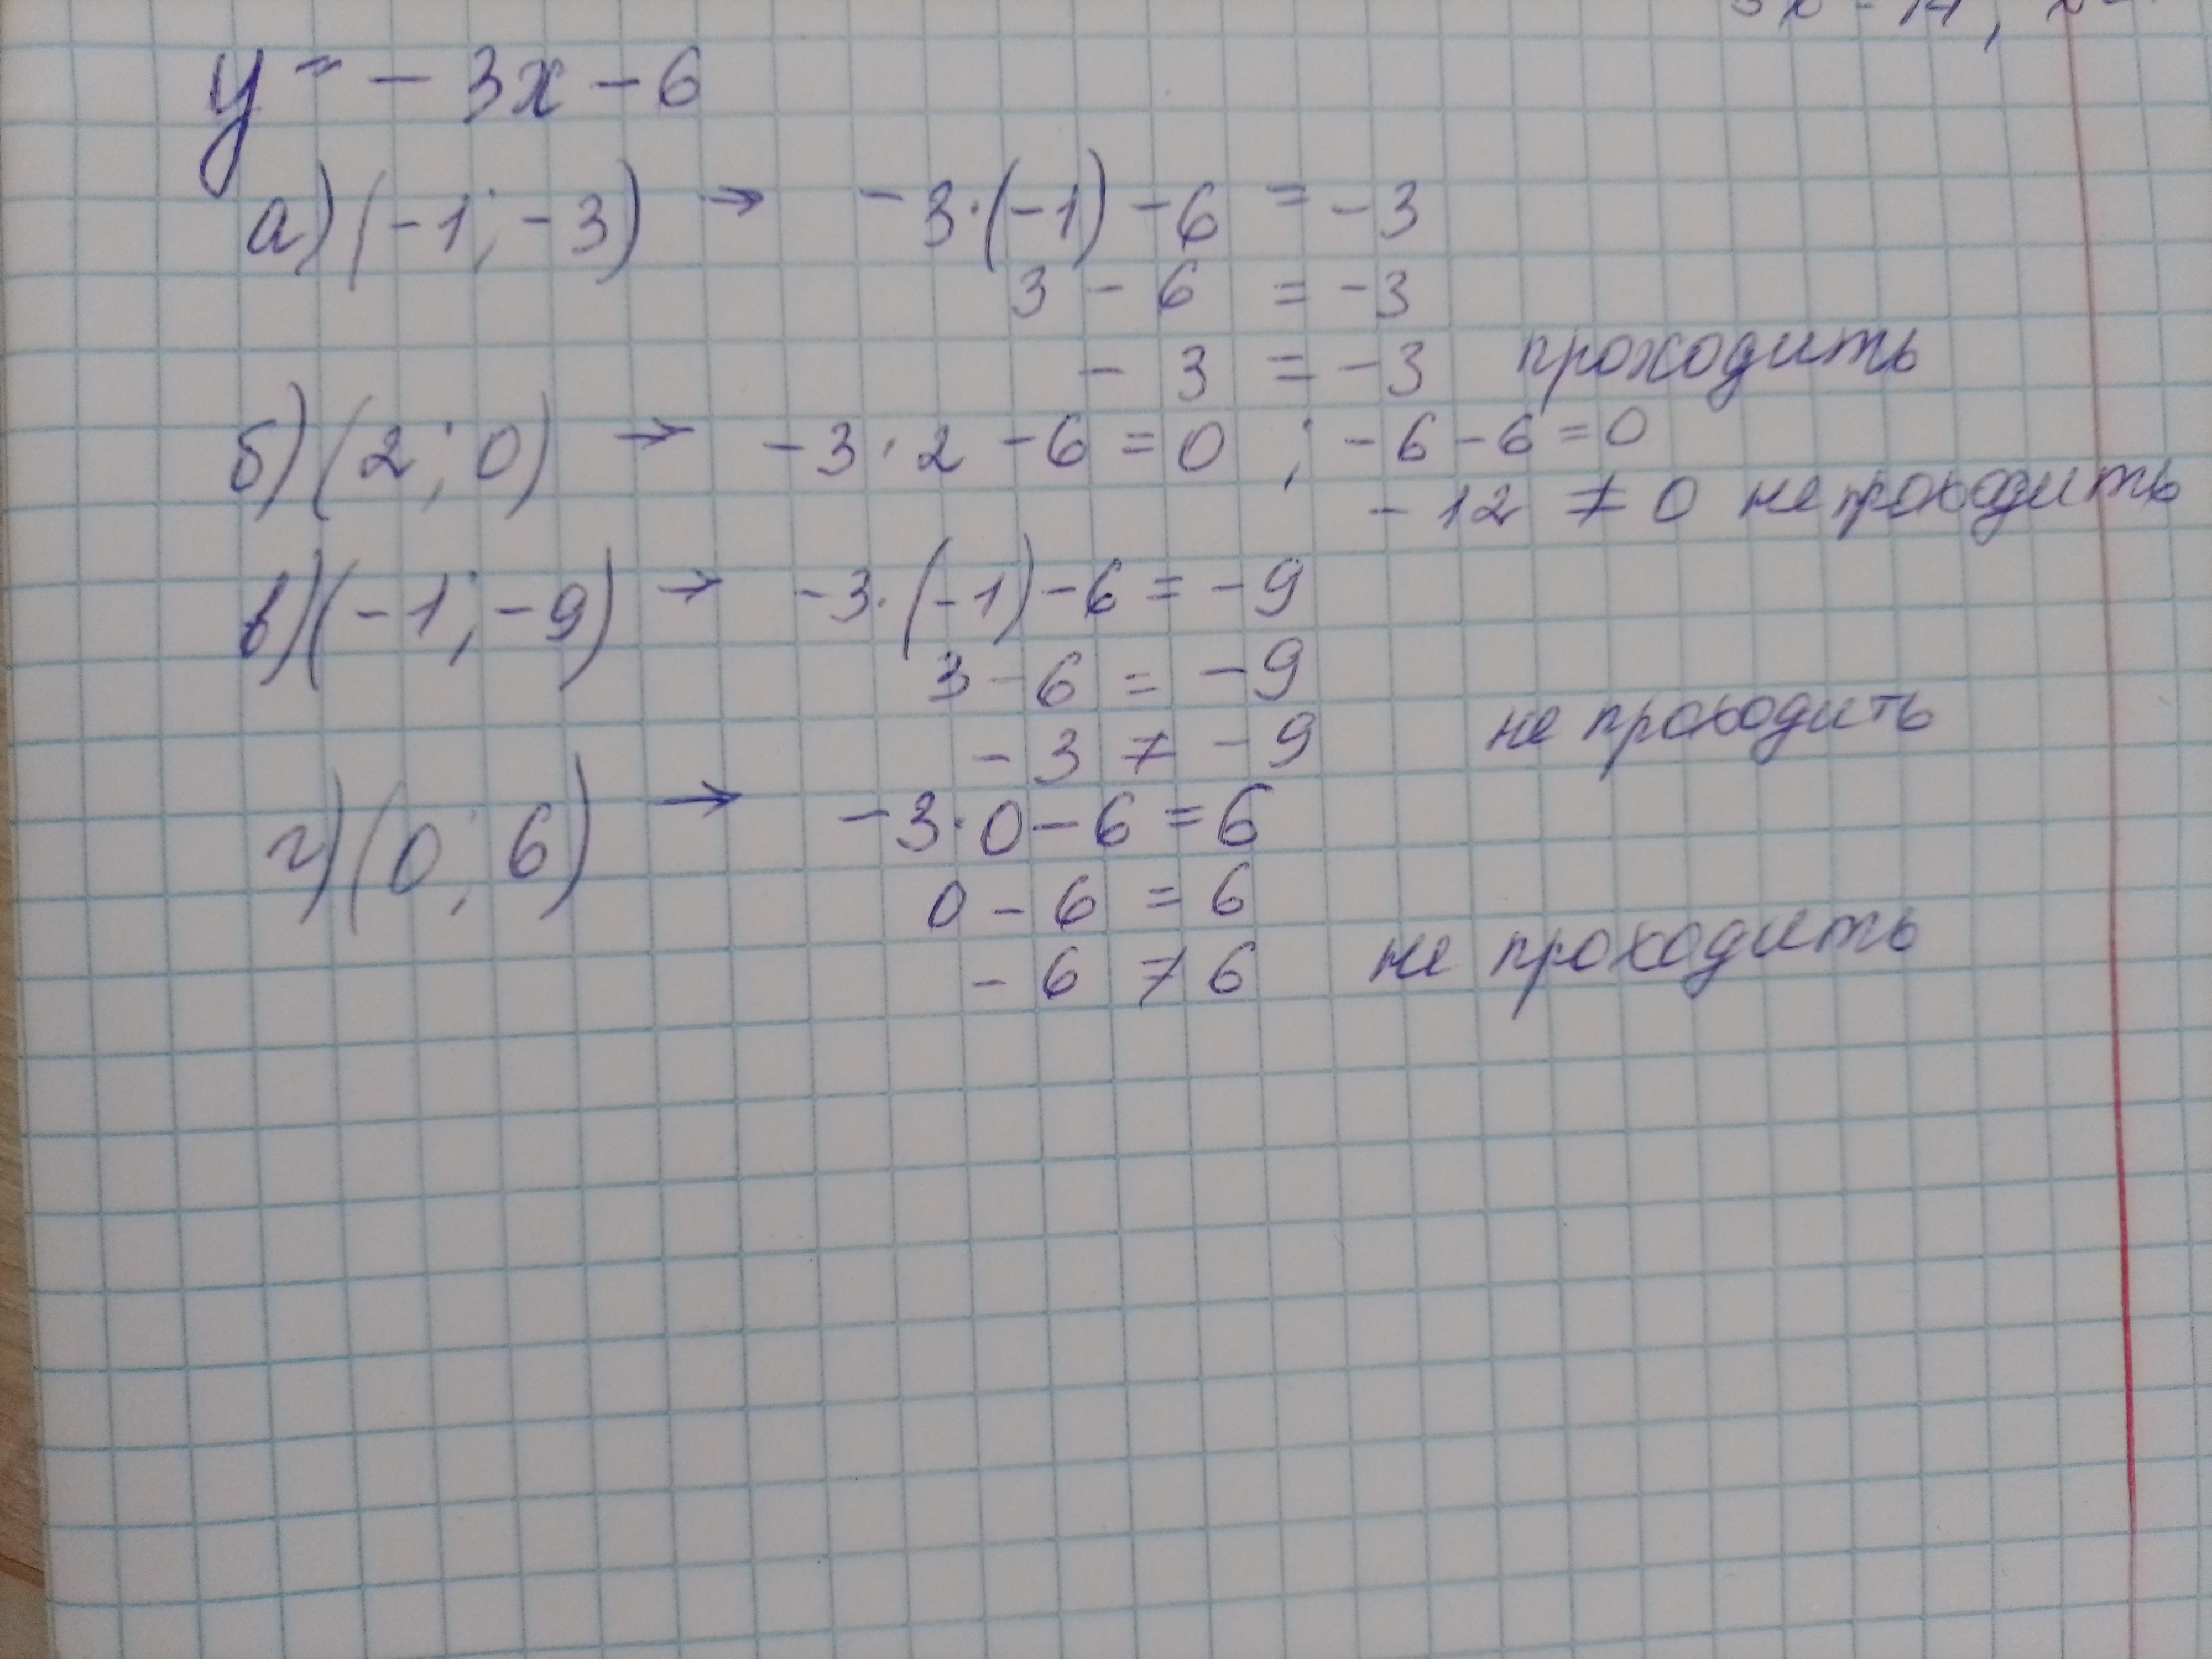 y = - 3x - 6
а) (-1; -3) → -3·(-1) - 6 = -3
3 - 6 = -3
- 3 = -3 проходить
б) (2; 0) → -3·2 - 6 = 0 ; -6 - 6 = 0
- 12 ≠ 0 не проходить
в) (-1; -9) → -3·(-1) - 6 = -9
3 - 6 = -9
- 3 ≠ -9 не проходить
г) (0; 6) → -3·0 - 6 = 6
0 - 6 = 6
- 6 ≠ 6 не проходить